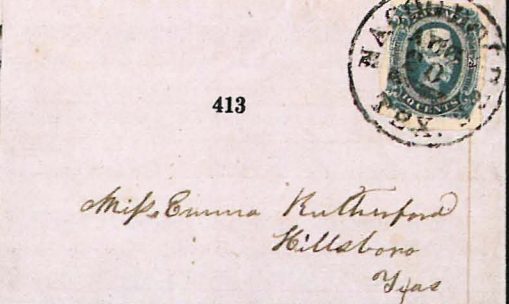 NACOGDOCHES
TEX.
10 CENTS
413
Miss Emma Rutherford
Hillsboro
Texas